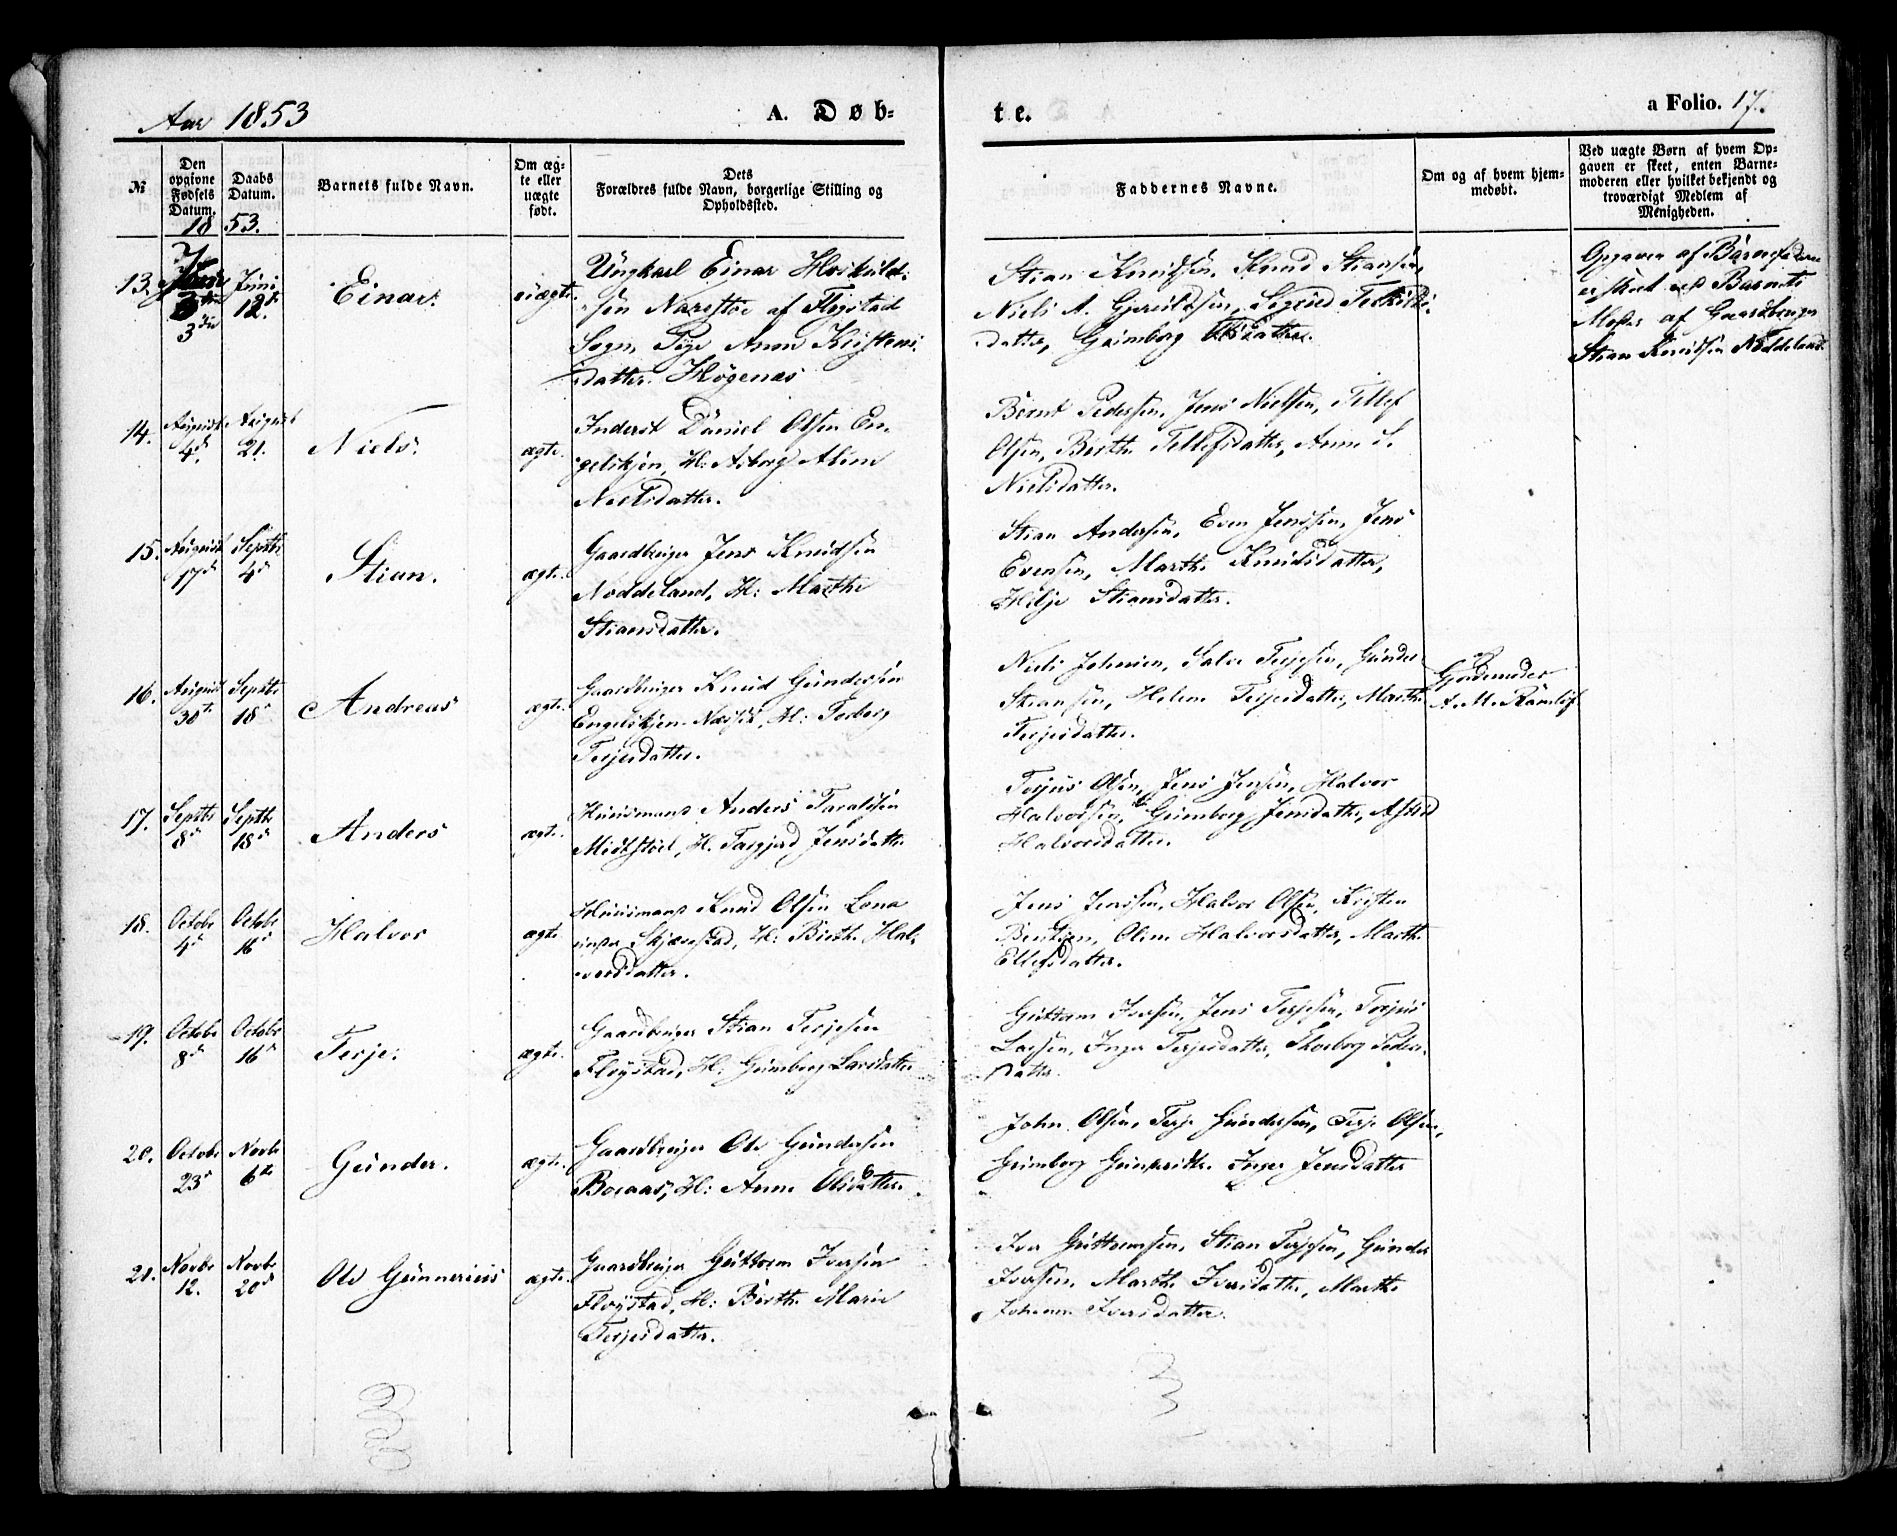 Aar 1853
A. Døb-
te.
a Folio. 17.
№
Den opgivne Fødsels Datum.
Daabs Datum.
Barnets fulde Navn.
Om æg-
te eller
uægte
født.
Dets
Forældres fulde Navn, borgerlige Stilling og
Opholdssted.
Faddernes Navne.
Om og af hvem hjem-
medøbt.
Ved uægte Børn af hvem Op-
gaven er skeet, enten Barne-
moderen eller hvilket bekjendt og
troværdigt Medlem af
Menigheden.
18 53.
13. 3die Juni 12. Einar. uægte.
Ungkarl Einar Hoskuld-
sen Narestøe af Fløystad
Sogn, Pige Anne Kristens-
datter Høgenæs
Stian Knudsen, Knud Stiansen,
Niels A. Gjeruldsen, Sigrid Terkilds-
datter, Guimborg Olsdatter.
Opgaven af Barnefaderen
er skeet ved Barnets
Moder af Gaardbruger
Stian Knudsen Nøddeland.
14. August 4d. August 21. Niels. ægte.
Inderst Daniel Olsen En-
gelskjen, H: Asborg Aline
Nielsdatter.
Bernt Pedersen, Jens Nielsen, Tellef
Olsen, Berthe Tellefsdatter, Anne S.
Nielsdatter.
15. August 17d Septbr 4d Stian. ægte.
Gaardbruger Jens Knudsen
Nøddeland, H: Marthe
Stiansdatter.
Stian Andersen, Even Jensen, Jens
Evensen, Marthe Knudsdatter,
Helje Stiansdatter.
16. August 30te Septbr 18d Andreas ægte.
Gaardbruger Knud Gundersen
Engelskjen-Næsset, H: Torborg
Terjesdatter.
Niels Johnsen, Salve Terjesen, Gunder
Stiansen, Helene Terjesdatter, Marthe
Terjesdatter.
af
Gjordemoder
A. M. Ramlef
17. Septbr 8d Septbr 18d Anders ægte.
Huusmand Anders Taraldsen
Midtstøel, H. Torgjerd Jensdatter
Torjus Olsen, Jens Jensen, Halvor
Halvorsen, Guimborg Jensdatter, Astrid
Halvorsdatter.
18. Octobr 4d Octobr 16d Halvor ægte
Huusmand Knud Olsen Lona
under Skjævestad, H: Birthe Hal-
vorsdatter.
Jens Jensen, Halvor Olsen, Kristen
Bentsen, Oline Halvorsdatter, Marthe
Ellefsdatter.
19. Octobr 8d Octobr 16d Terje. ægte.
Gaardbruger Stian Terjesen
Fløystad, H: Guimborg Larsdatter
Guttorm Iversen, Jens Terjesen, Torjus
Larsen, Inger Terjesdatter, Thorborg Peders-
datter.
20. Octobr 23d Novbr 6te Gunder. ægte.
Gaardbruger Ole Gundersen
Boraas, H: Anne Olsdatter.
John Olsen, Terje Gundersen, Terje Olsen,
Guimborg Inger Jensdatter
21. Novbr 12. Novbr 20d Ole Gunnerius ægte.
Gaardbruger Guttorm Iversen
Fløystad, H: Birthe Marie
Terjesdatter.
Iver Guttormsen, Stian Terjesen, Gunder
Iversen, Marthe Iversdatter, Marthe
Johanne Iversdatter.